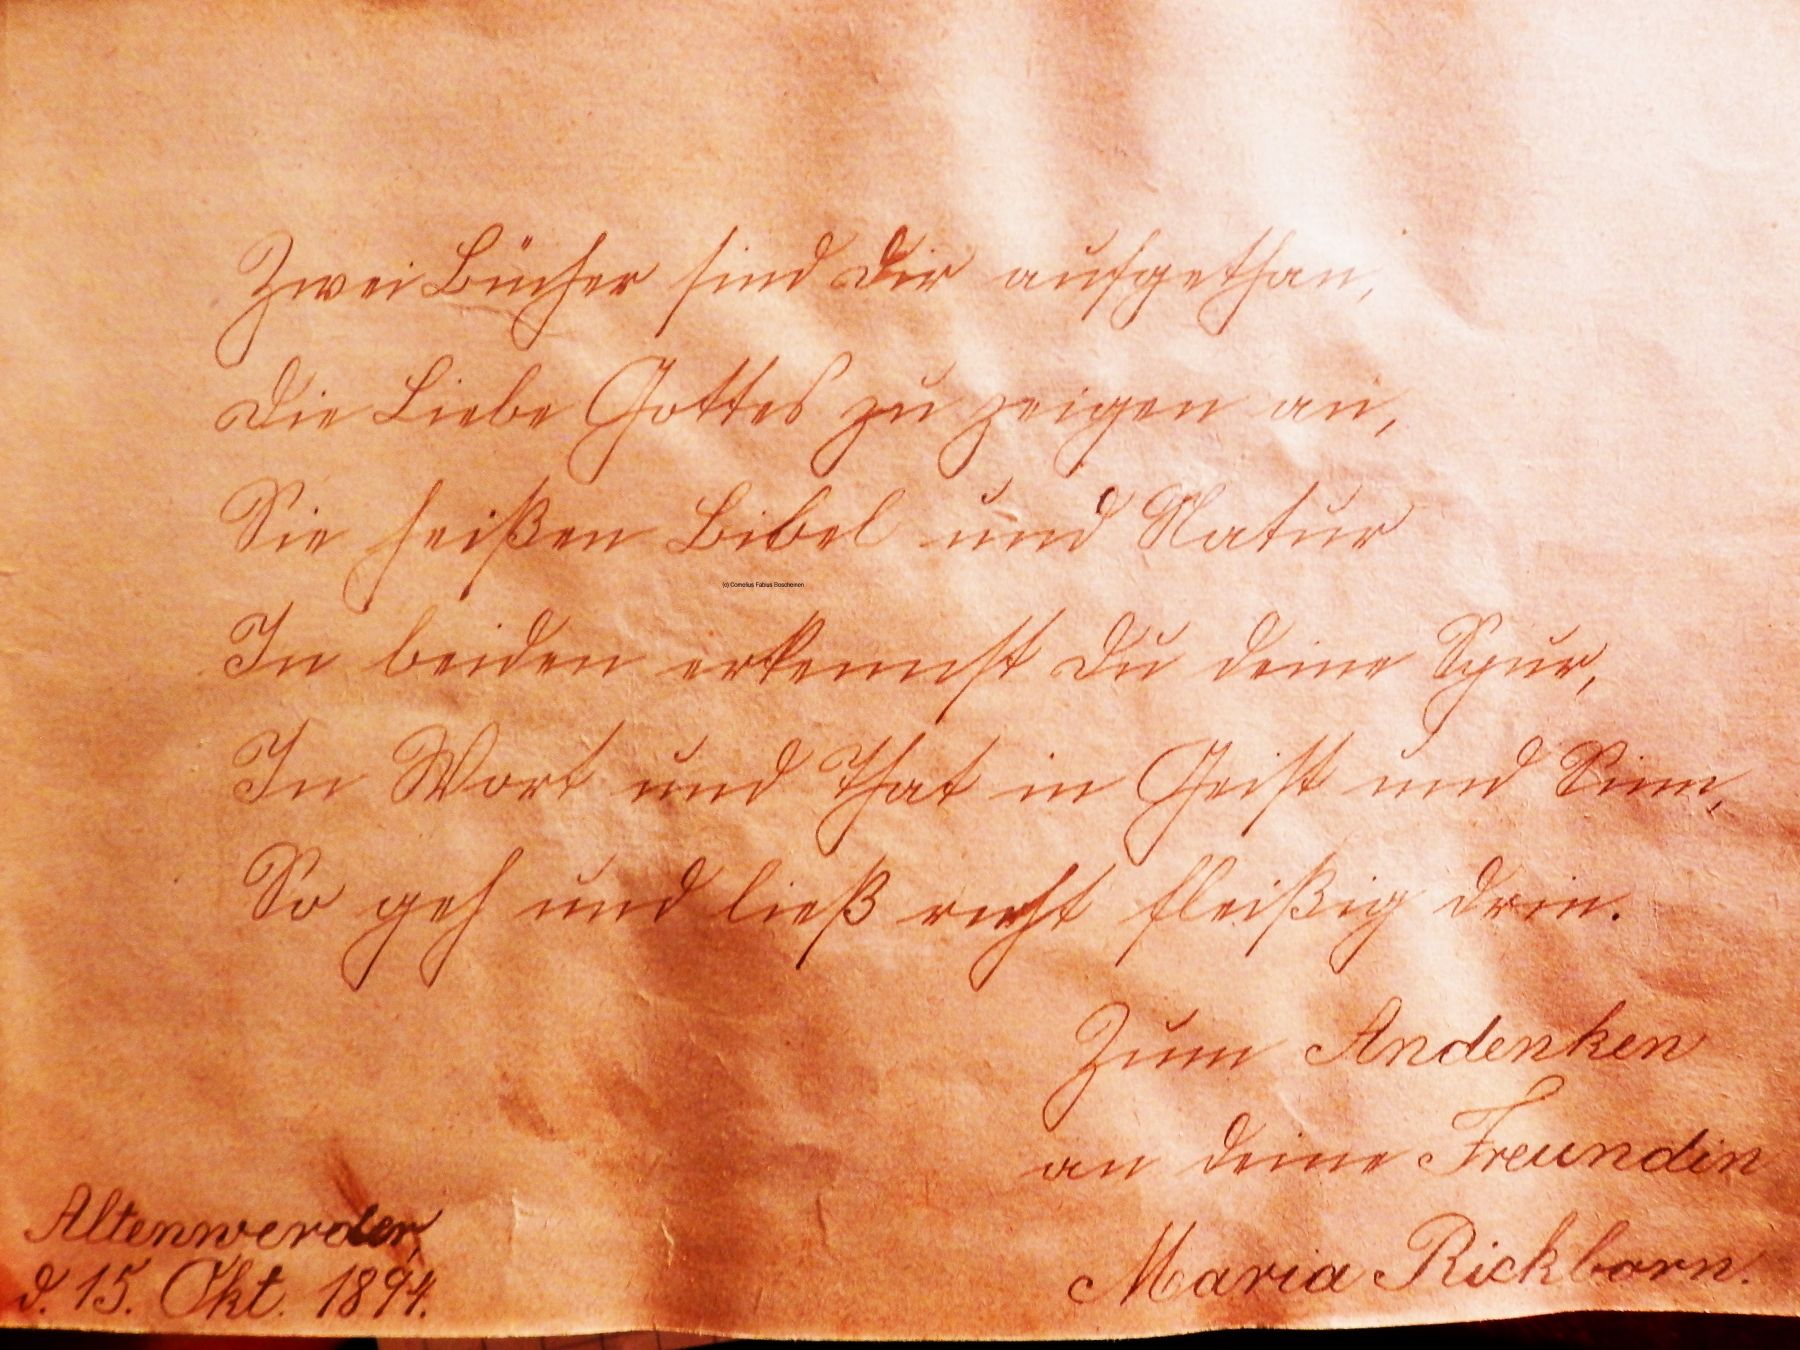 Zwei Bücher sind Dir aufgethan,
Die Liebe Gottes zu zeigen an,
Sie heißen Bibel und Natur
(c) Cornelius Fabius Boscheinen
In beiden erkennst Du deine Spur,
In Wort und That in Geist und Sinn,
So geh und ließ recht fleißig drin.
Zum Andenken
an deine Freundin
Maria Rickborn.
Altenwerder,
d. 15. Okt. 1894.